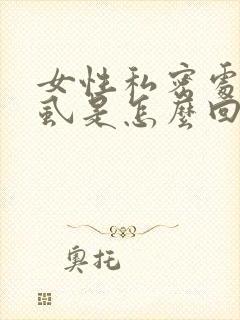 女性私密處
虱是怎麼回
奧托